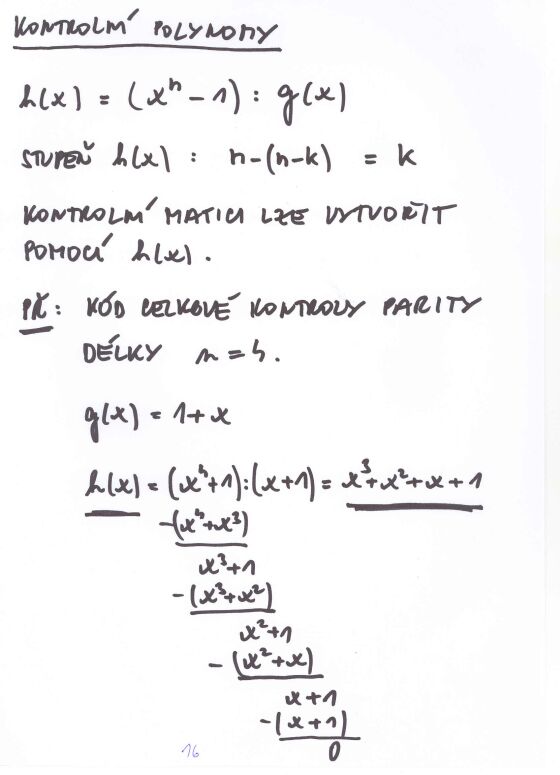 KONTROLNÍ POLYNOMY
h(x) = (xⁿ - 1) : g(x)
STUPEŇ h(x) : n-(n-k) = k
KONTROLNÍ MATICI LZE VYTVOŘIT
POMOCÍ h(x).
PŘ: KÓD CELKOVÉ KONTROLY PARITY
DÉLKY n = 4.
g(x) = 1+x
h(x) = (x⁴+1):(x+1) = x³+x²+x+1
-(x⁴+x³)
x³+1
-(x³+x²)
x²+1
-(x²+x)
x+1
-(x+1)
0
16